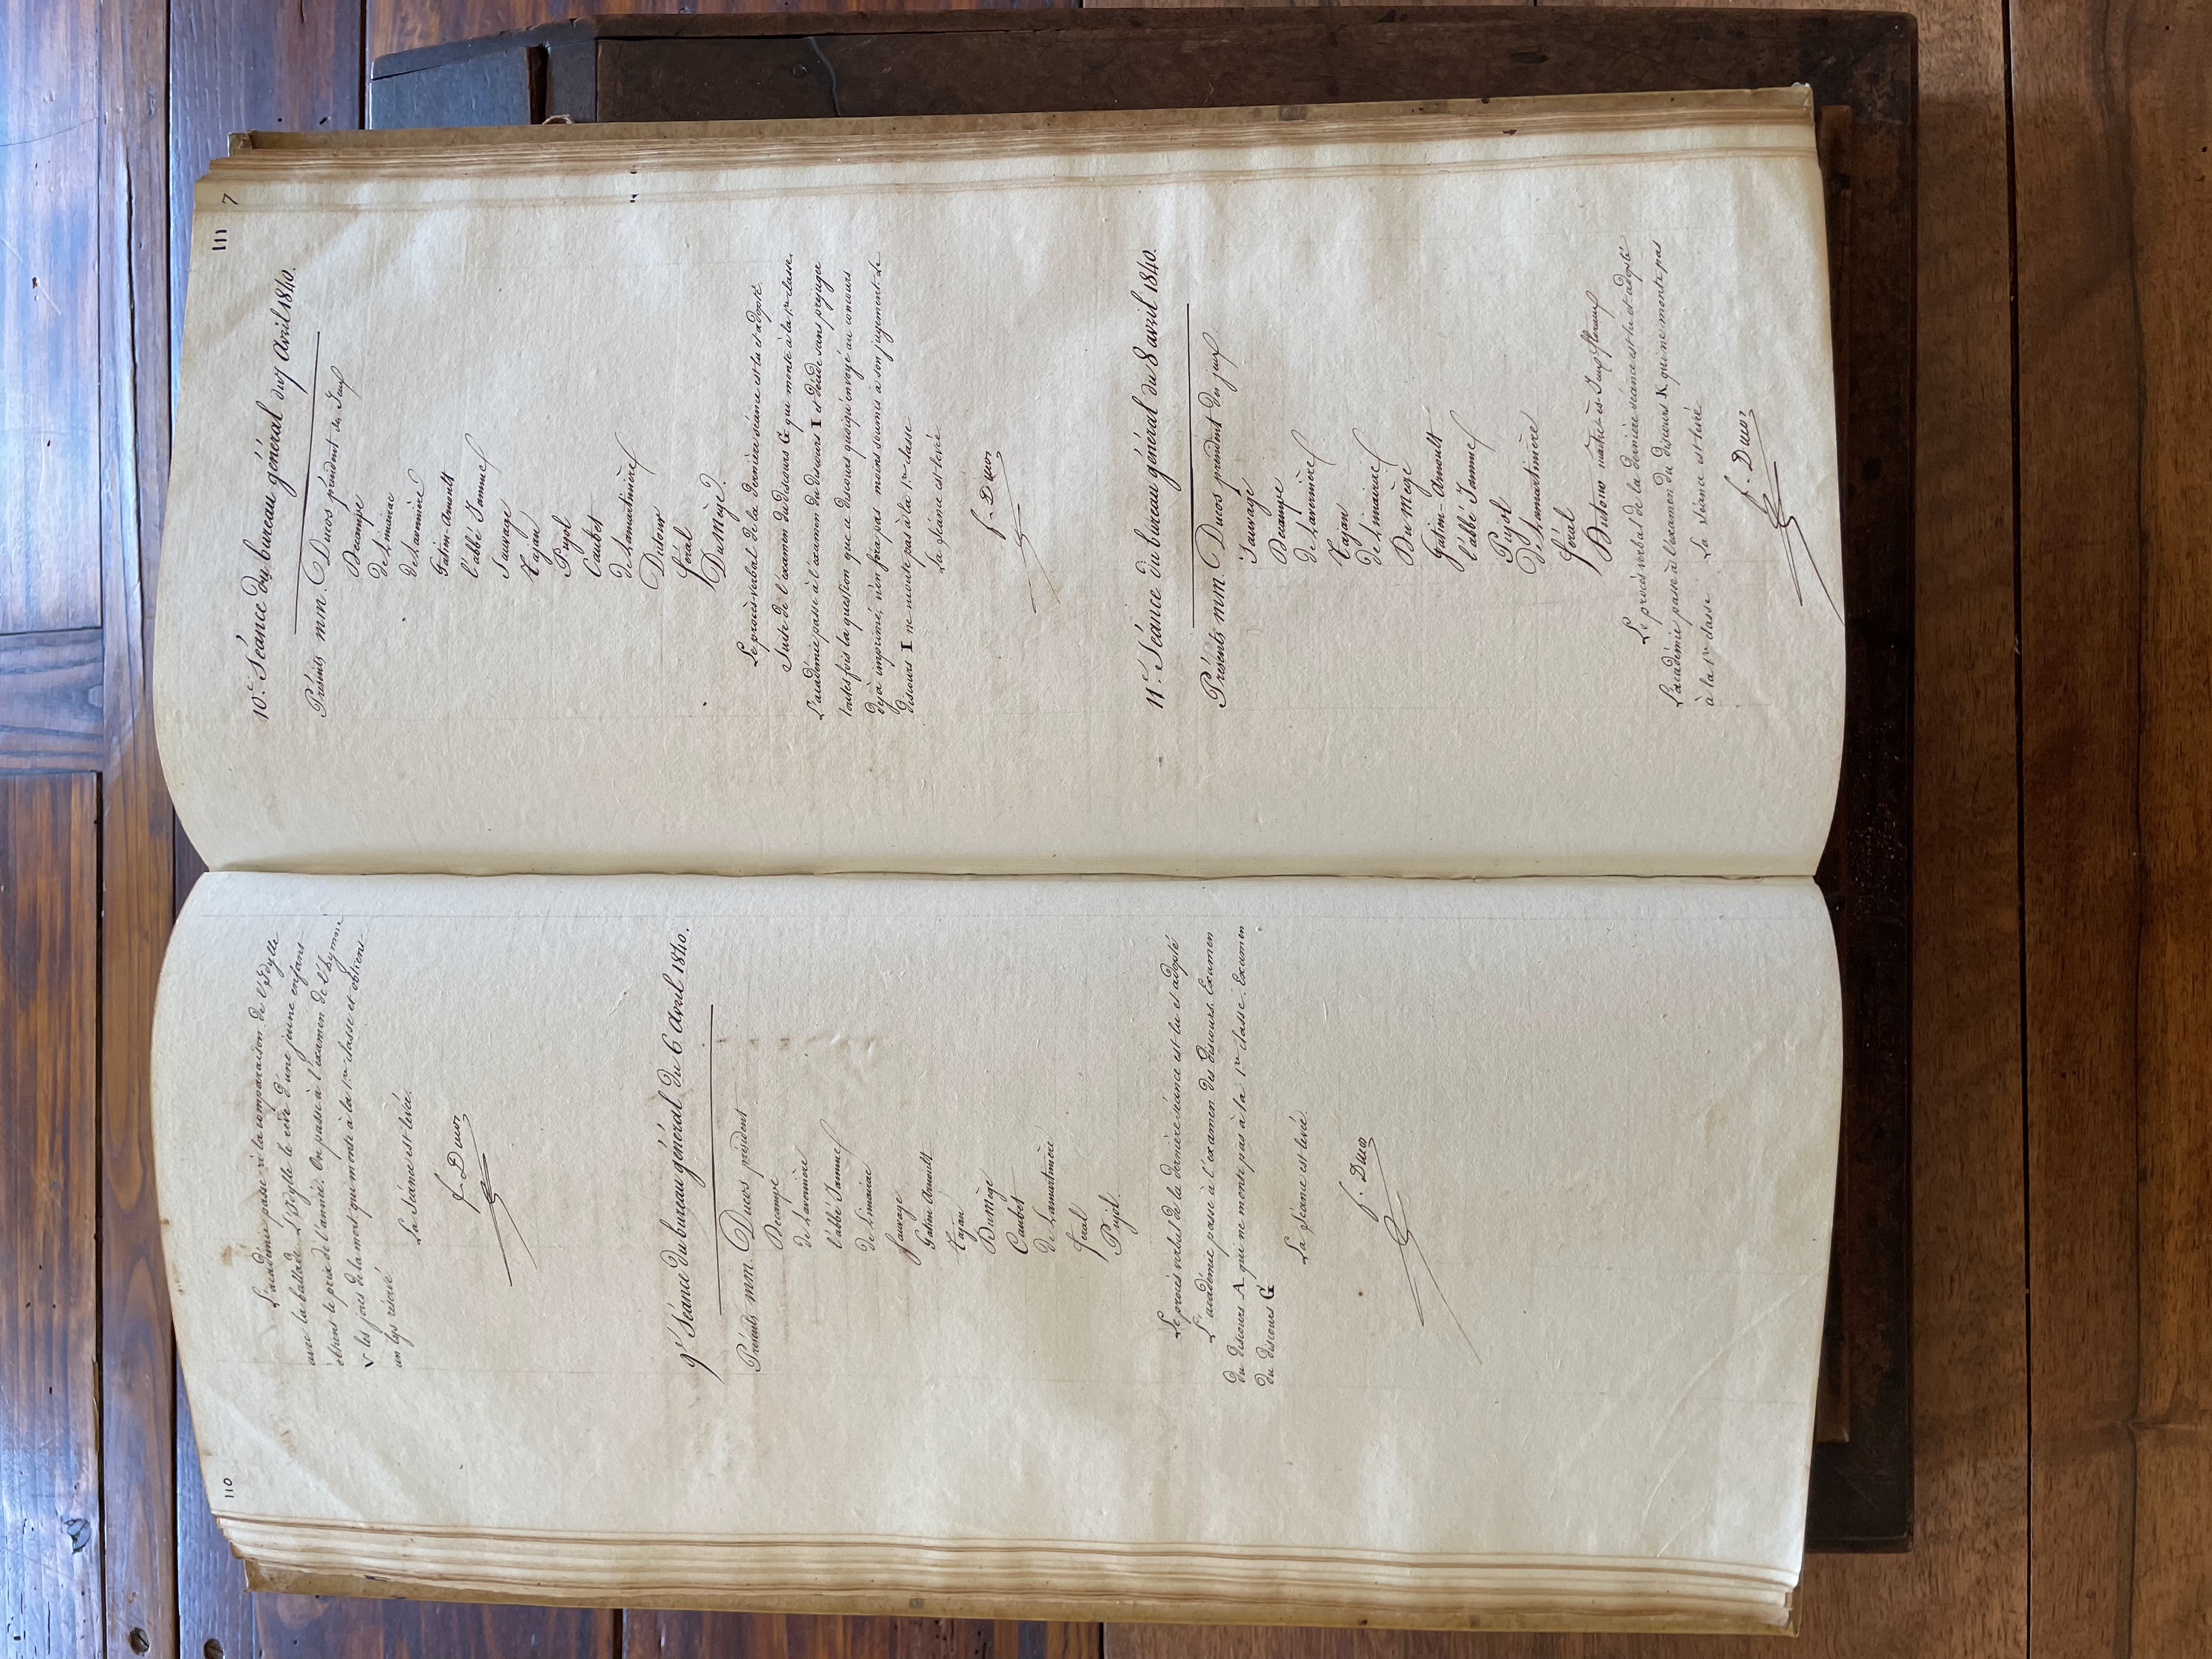 110
L'académie passe à la comparaison de l'Idylle
avec la ballade. L'Idylle le rêve d'une jeune enfant
obtient le prix de l'année. On passe à l'examen de l'hymne
V les joies de la mort qui monte à la 1re classe et obtient
un lys réservé.
La Séance est levée.
f. Ducos
9e Séance du bureau général du 6 Avril 1840.
Présents mm. Ducos président
Decampe
de Lavonnière
l'abbé Jammes
de Limairac
Sauvage
Gatien Arnoult
Tajan
DuMège
Caubet
de Lamartinière
féral
Pujol.
Le procès verbal de la dernière séance est lu et adopté
L'académie passe à l'examen des discours. Examen
du discours A qui ne monte pas à la 1re classe. Examen
du discours G
La séance est levée
f. Ducos
111
7
10e. Séance du bureau général du 7 Avril 1840.
Présents mm. Ducos président des Jeux
Decampe
de Limairac
de Lavonnière
Gatien-Arnoult
l'abbé Jammes
Sauvage
Tajan
Pujol
Caubet
de Lamartinière
Dutour
féral
DuMège.
Le procès-verbal de la dernière séance est lu et adopté.
Suite de l'examen du discours G qui monte à la 1re classe.
L'académie passe à l'examen du discours I et décide sans préjuger
toutesfois la question que ce discours quoiqu'envoyé au concours
déjà imprimé, n'en fera pas moins soumis à son jugement. Le
discours I ne monte pas à la 1re classe
La séance est levée.
f. Ducos
11e. Séance du bureau général du 8 avril 1840.
Présents mm. Ducos président des jeux
Sauvage
Decampe
de Lavonnière
Tajan
de Limairac
Du Mège
Gatien-Arnoult
l'abbé Jammes
Pujol
De Lamartinière
féral
Dutour maître-ès-Jeux floraux
Le procès verbal de la dernière séance est lu et adopté
L'académie passe à l'examen du discours K qui ne monte pas
à la 1re classe. La séance est levée.
f. Ducos